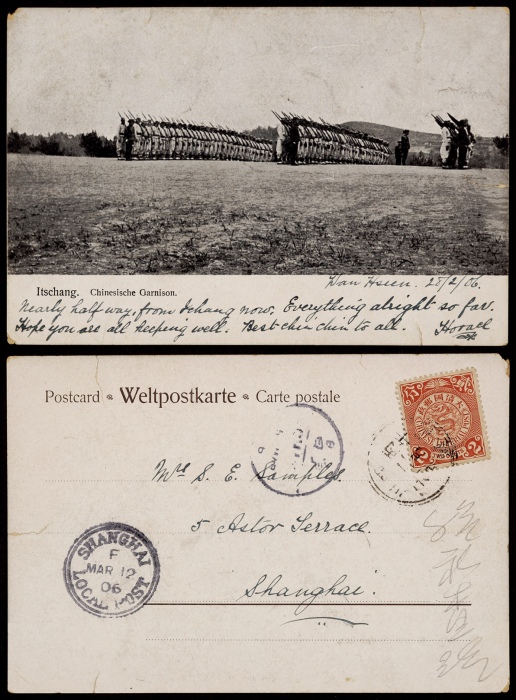 Itschang. Chinesische Garnison.
Wan Hsien. 28/2/06.
Nearly half way, from Ichang now. Everything alright so far.
Hope you are all keeping well. Best chin chin to all. Horace
Postcard Weltpostkarte Carte postale
Mrs S. E. Samples.
5 Astor Terrace.
Shanghai.
SHANGHAI
F
MAR 12
06
LOCAL POST
2
2